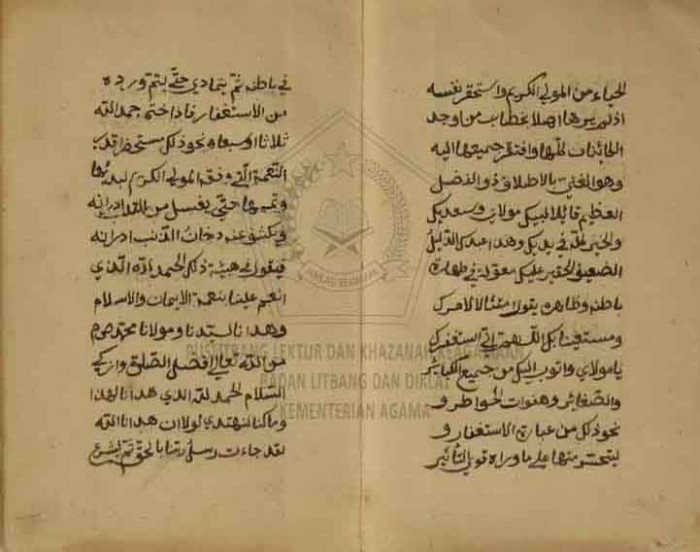 الحياء من المولى الكريم واستحقر نفسه
اذ لم يرها اهلا لخطاب من وجد
الكائنات كلها وافتقر جميعها اليه
وهو الغني بالاطلاق ذو الفضل
العظيم قائلا لبيك مولاي وسعديك
والخير كله في يديك وهذا عبدك الذليل
الضعيف الحقير عليك معولة في طهارة
باطنه وظاهره يقول امتثالا لامرك
ومستعينا بك اللهم اني استغفرك
يا مولاي واتوب اليك من جميع الكبائر
والصغائر وهفوات الخواطر و
نحو ذلك من عبارة الاستغفار و
ليتحسر منها على ما وراه قوي التأثير
في باطنه ثم يتمادى حتى يتم ورده
من الاستغفار فاذا ختم حمد الله
ثلاثا او سبعا او نحو ذلك مستحضرا قدر
النعمة التي وفق المولى الكريم لبدئها
وتمها حتى يغسل من القلب ادرانه
ويكشف عنه دخان الذنب ادرانه
فيقول في هيئة ذلك الحمد لله الذي
انعم علينا بنعمة الايمان والاسلام
وهدانا بسيدنا ومولانا محمد صم
من الله تعالى افضل الصلاة وازكى
السلام الحمد لله الذي هدانا لهذا
وما كنا لنهتدي لولا ان هدانا الله
لقد جاءت رسل ربنا بالحق ثم ليشرع
PUSLITBANG LEKTUR DAN KHAZANAH KEAGAMAAN
BADAN LITBANG DAN DIKLAT
KEMENTERIAN AGAMA